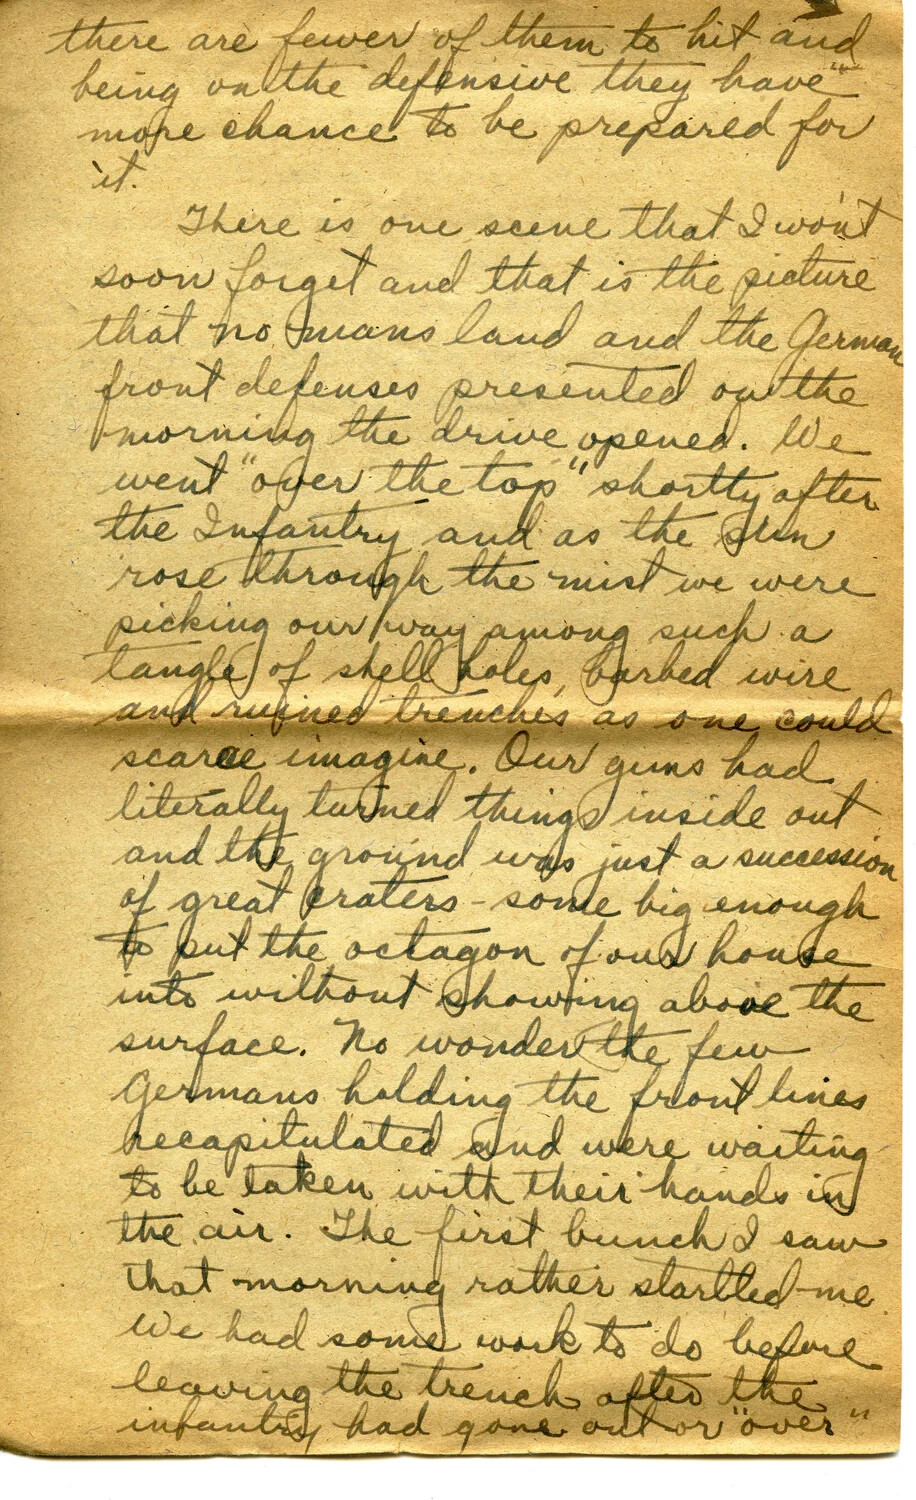 there are fewer of them to hit and
being on the defensive they have
more chance to be prepared for
it.
There is one scene that I won't
soon forget and that is the picture
that no mans land and the German
front defenses presented on the
morning the drive opened. We
went "over the top" shortly after
the Infantry and as the sun
rose through the mist we were
picking our way among such a
tangle of shell holes, barbed wire
and ruined trenches as one could
scarce imagine. Our guns had
literally turned things inside out
and the ground was just a succession
of great craters - some big enough
to put the octagon of our house
into without showing above the
surface. No wonder the few
Germans holding the front lines
recapitulated and were waiting
to be taken with their hands in
the air. The first bunch I saw
that morning rather startled me.
We had some work to do before
leaving the trench after the
infantry had gone out or "over"